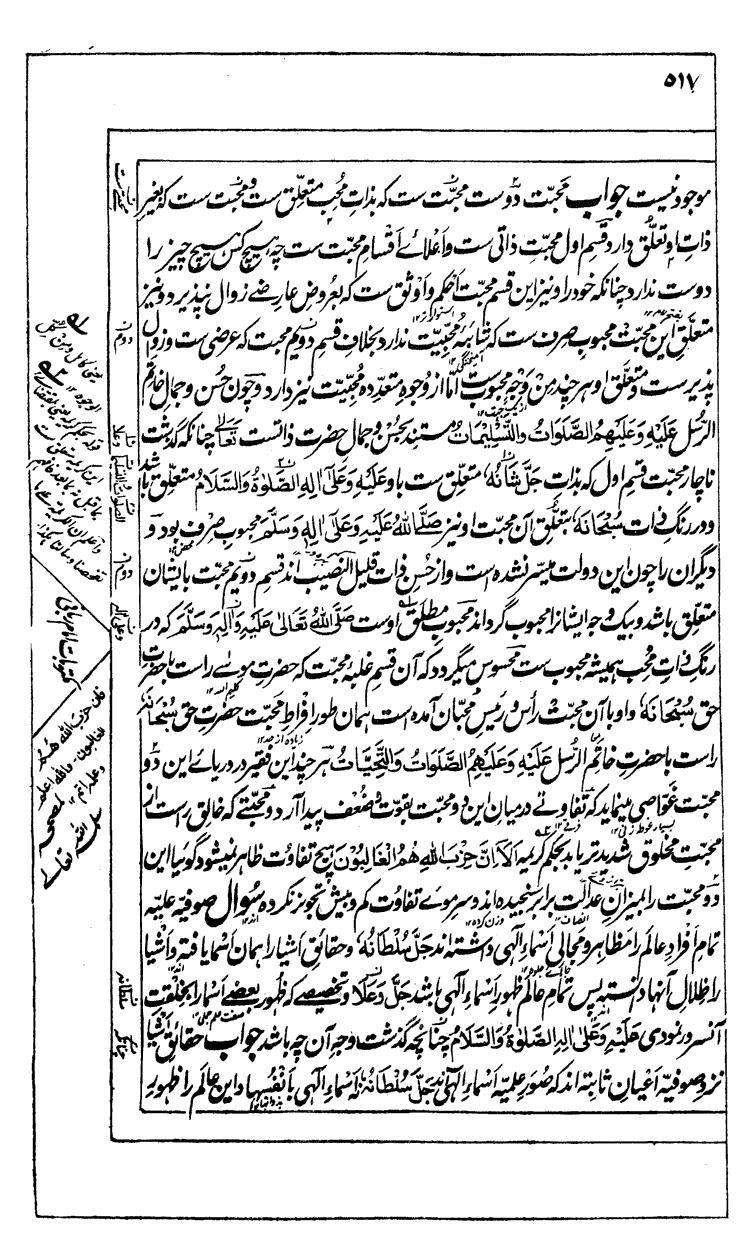 ۵۱۷
موجود نیست جواب محبّت دوست محبّت ست که بذاتِ مُحِب متعلّق ست و محبّت ست که بغیر
ذاتِ او تعلّق دارد قسمِ اول محبّت ذاتی ست و اَعلائے اَقسامِ محبّت ست چه هیچ کس هیچ چیز را
دوست ندارد چنانکه خود را و نیز این قسم محبّت اَحکم و اَوثق ست که بعُروضِ عارضے زوال نپذیرد و نیز
متعلّق این محبّت محبوبِ صرف ست که شائبهٔ مُحبّیّت ندارد بخلافِ قسمِ دویم محبت که عرضی ست و زوال
پذیر ست و متعلّق او هر چند مِنْ وَجْهٍ محبوب ست اَمّا از وُجوهِ متعدّده مُحبّیّت نیز دارد و چون حُسن و جمالِ خاتَم
الرُّسل عَلَیْهِ وَعَلَیْهِمُ الصَّلَوَاتُ وَالتَّسْلِیْمَاتُ مستند بحُسن و جمالِ حضرت ذاتست تَعَالٰی چنانکه گذشت
ناچار محبّت قسمِ اول که بذات جَلَّ شَانُهٗ متعلّق ست باو عَلَیْهِ وَعَلٰی اٰلِهِ الصَّلٰوةُ وَالسَّلَامُ متعلّق باشد
و در رنگِ ذات سُبْحَانَهٗ بتعلّقِ آن محبّت او نیز صَلَّی اللهُ عَلَیْهِ وَعَلٰی اٰلِهٖ وَسَلَّمَ محبوبِ صرف بود و
دیگران را چون این دولت میسّر نشده است و از حُسنِ ذات قلیل النّصیب اند قسمِ دویم محبّت بایشان
متعلّق باشد و بیک وجه ایشانرا محبوب گرداند محبوبِ مطلق اوست صَلَّی اللهُ تَعَالٰی عَلَیْهِ وَاٰلِهٖ وَسَلَّمَ که در
رنگِ ذاتِ مُحِب همیشه محبوب ست محسوس میگردد که آن قسمِ غلبهٔ محبّت که حضرت موسٰے راست باحضرتِ
حق سُبْحَانَهٗ و او باآن محبّت رأس و رئیسِ محبّان آمده است همان طور اِفراطِ محبّت حضرتِ حق سُبْحَانَهٗ
راست باحضرتِ خاتَم الرُّسل عَلَیْهِ وَعَلَیْهِمُ الصَّلَوَاتُ وَالتَّحِیَّاتُ هر چند این فقیر در دریائے این دو
محبّت غوّاصی مینماید که تفاوتے درمیان این دو محبّت بقوّت و ضُعف پیدا آرد و محبّتے که خالق راست از
محبّتِ مخلوق شدیدتر یابد بحکمِ کریمه اَلَا اِنَّ حِزْبَ اللهِ هُمُ الْغَالِبُوْنَ هیچ تفاوت ظاهر نمیشود گوئیا این
دو محبّت را بمیزانِ عدالت برابر سنجیده اند و سرِ موئے تفاوت کم و بیش تجویز نکرده سوال صوفیهٔ علیّه
تمامِ اَفرادِ عالَم را مظاهر و مَجالیِ اَسماءِ الٰهی داشته اند جَلَّ سُلْطَانُهٗ و حقائقِ اَشیا را همان اَسما یافته و اَشیا
را ظِلالِ آنها دانسته پس تمامِ عالَم ظهورِ اَسماءِ الٰهی باشد جَلَّ وَعَلَا و تخصیصے که ظهورِ بعضے اَسما را بخلقتِ
آنسرور نمودی عَلَیْهِ وَعَلٰی اٰلِهِ الصَّلٰوةُ وَالسَّلَامُ چنانچه گذشت وجهِ آن چه باشد جواب حقائقِ اشیا
نزدِ صوفیّه اَعیانِ ثابته اند که صُوَرِ علمیّهٔ اَسماءِ الٰهی اند جَلَّ سُلْطَانُهٗ نه اَسماءِ الٰهی بِاَنْفُسِهَا و این عالَم را ظهورِ
مکتوبات امام ربانی
فان حزب الله هم
الغالبون والله اعلم
سلمه الله تعالے